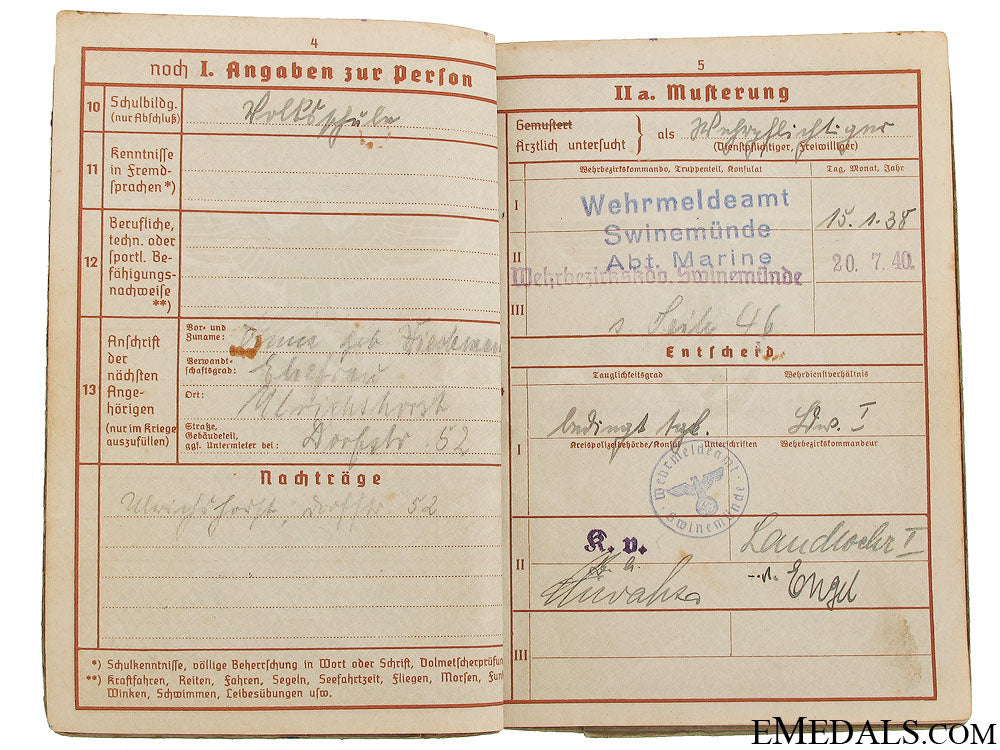 4
noch I. Angaben zur Person
10 Schulbildg. (nur Abschluß) Volksschule
11 Kenntnisse in Fremd-
sprachen *)
12 Berufliche,
techn. oder
sportl. Be-
fähigungs-
nachweise
**)
13 Anschrift
der
nächsten
Ange-
hörigen
(nur im Kriege
auszufüllen)
Vor- und
Zuname: geb
Verwandt-
schaftsgrad: Ehefrau
Ort: Ulrichshorst
Straße,
Gebäudeteil,
ggf. Untermieter bei: Dorfstr 52
Nachträge
Ulrichshorst, Dorfstr. 52
*) Schulkenntnisse, völlige Beherrschung in Wort oder Schrift, Dolmetscherprüfun
**) Kraftfahren, Reiten, Fahren, Segeln, Seefahrtzeit, Fliegen, Morsen, Fun
Winken, Schwimmen, Leibesübungen usw.
5
II a. Musterung
Gemustert
Ärztlich untersucht } als Wehrpflichtiger
(Dienstpflichtiger, Freiwilliger)
Wehrbezirkskommando, Truppenteil, Konsulat Tag, Monat, Jahr
I Wehrmeldeamt
Swinemünde 15.1.38
II Abt. Marine 20. 7. 40.
Wehrbezirkskdo. Swinemünde
III s Seite 46
Entscheid
Tauglichkeitsgrad Wehrdienstverhältnis
I bedingt tgl. Ldw. I
Kreispolizeibehörde/Konsul Unterschriften Wehrbezirkskommandeur
Wehrmeldeamt Swinemünde
II K. v. Landwehr I
Engel
III
EMEDALS.COM